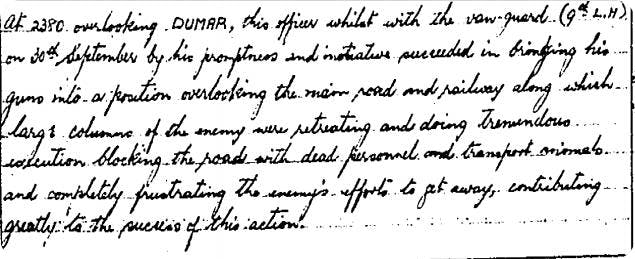 At 2380 overlooking DUMAR, this officer whilst with the van-guard (9th L.H)
on 30th September by his promptness and initiative succeeded in bringing his
guns into a position overlooking the main road and railway along which
large columns of the enemy were retreating and doing tremendous
execution blocking the road with dead personnel and transport animals
and completely frustrating the enemy's efforts to get away, contributing
greatly to the success of this action.